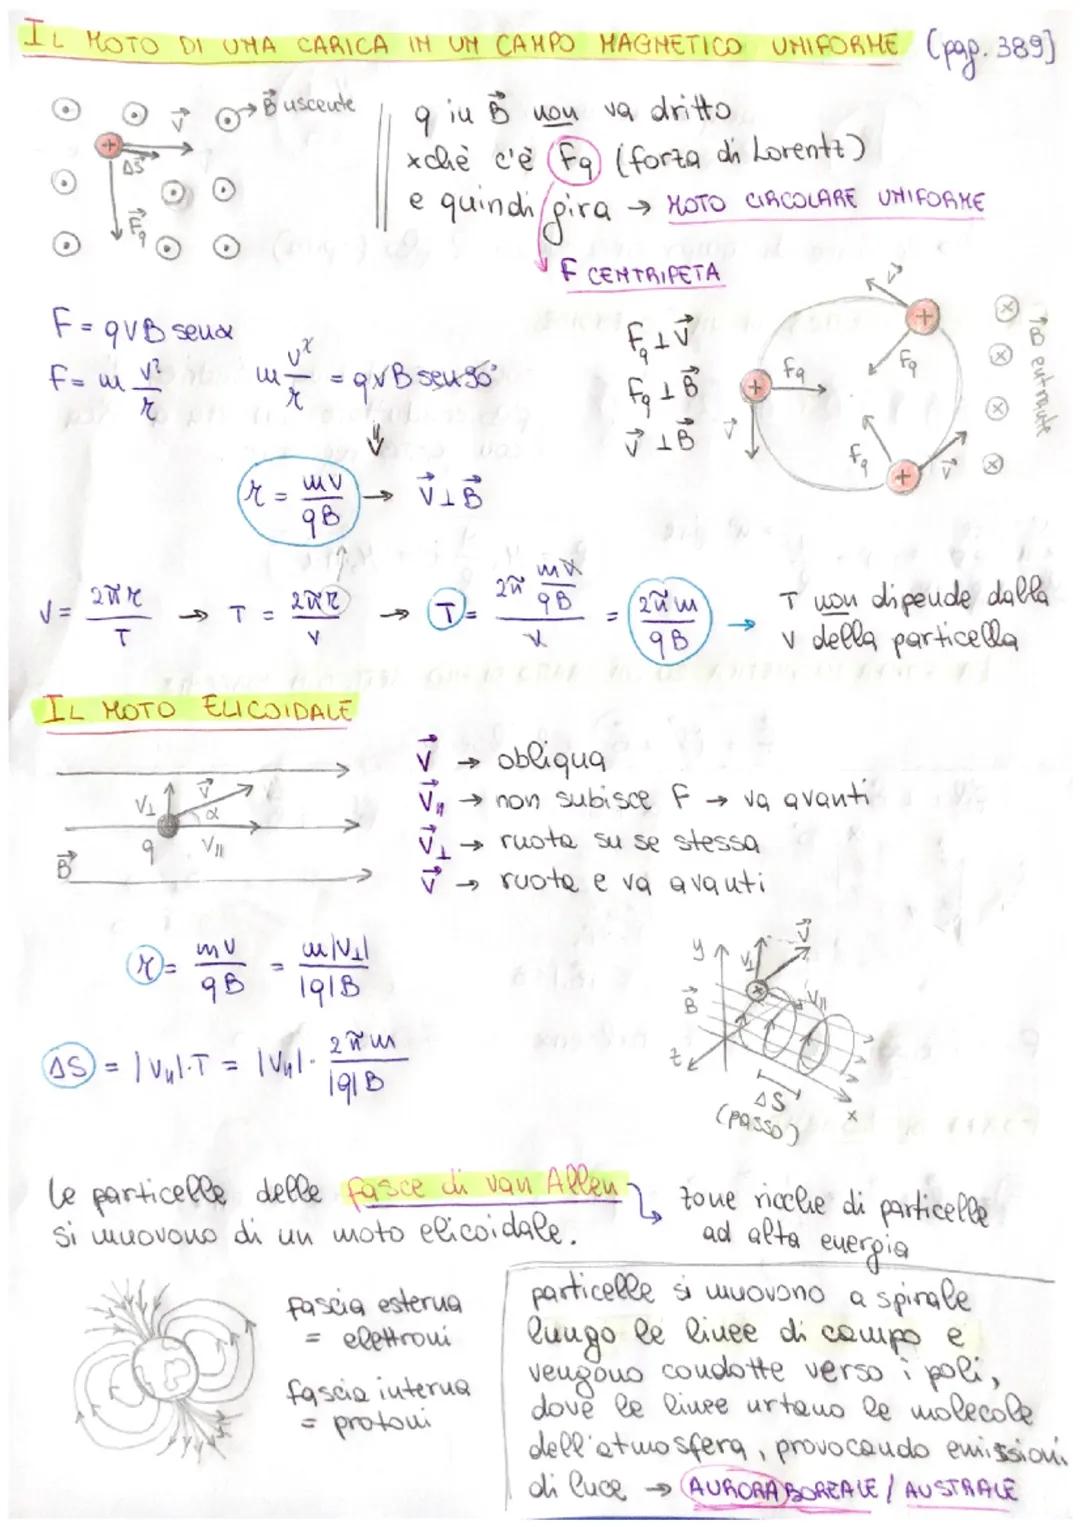 IL MOTO DI UNA CARICA IN UN CAMPO MAGNETICO UNIFORME (pag. 389)
B⃗ uscente
v⃗
+
ΔS⃗
F⃗q
q in B⃗ non va dritto
xchè c'è Fq (forza di Lorentz)
e quindi gira → MOTO CIRCOLARE UNIFORME
F CENTRIPETA
F = qVB senα
F = m v²/r
m v²/r = qvB sen90°
⇓
r = mv/qB → v⃗ ⊥ B⃗
Fq ⊥ v⃗
Fq ⊥ B⃗
v⃗ ⊥ B⃗
v⃗
+
Fq
+
Fq
v⃗
Fq
+
v⃗
B⃗ entrante
V = 2πr/T → T = 2πr/v → T = 2π mv/qB / v = 2πm/qB → T non dipende dalla
v della particella
IL MOTO ELICOIDALE
V⊥
v⃗
α
q
V∥
B⃗
v⃗ → obliqua
v⃗∥ → non subisce F → va avanti
v⃗⊥ → ruota su se stessa
v⃗ → ruota e va avanti
r = mv/qB = m|V⊥|/|q|B
ΔS = |V∥|·T = |V∥|· 2πm/|q|B
y
V⊥
v⃗
V∥
B⃗
z
ΔS
x
(passo)
le particelle delle fasce di van Allen
si muovono di un moto elicoidale.
zone ricche di particelle
ad alta energia
fascia esterna
= elettroni
fascia interna
= protoni
particelle si muovono a spirale
lungo le linee di campo e
vengono condotte verso i poli,
dove le linee urtano le molecole
dell'atmosfera, provocando emissioni
di luce → AURORA BOREALE / AUSTRALE